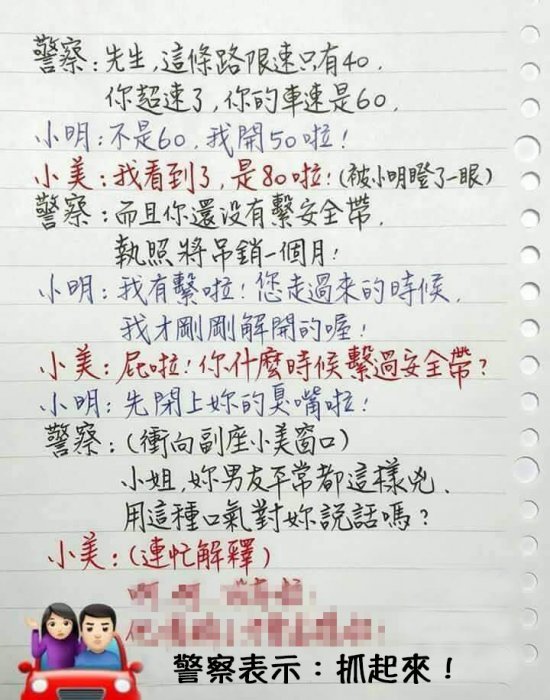 警察：先生,這條路限速只有40.
你超速了,你的車速是60.
小明：不是60,我開50啦!
小美：我看到了,是80啦!(被小明瞪了一眼)
警察：而且你還沒有繫安全帶.
執照將吊銷一個月!
小明：我有繫啦!您走過來的時候.
我才剛剛解開的喔!
小美：屁啦!你什麼時候繫過安全帶?
小明：先閉上妳的臭嘴啦!
警察：(衝向副座小美窗口)
小姐,妳男友平常都這樣兇.
用這種口氣對妳説話嗎?
小美：(連忙解釋)
警察表示：抓起來！